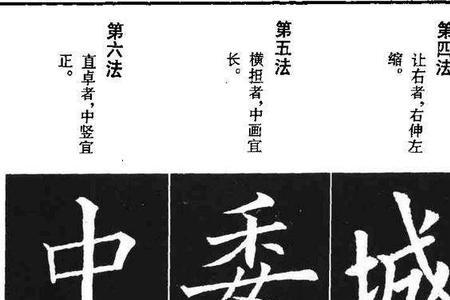 第四法
让右者，右伸左
缩。
城
第五法
横担者，中画宜
长。
委
第六法
直卓者，中竖宜
正。
中